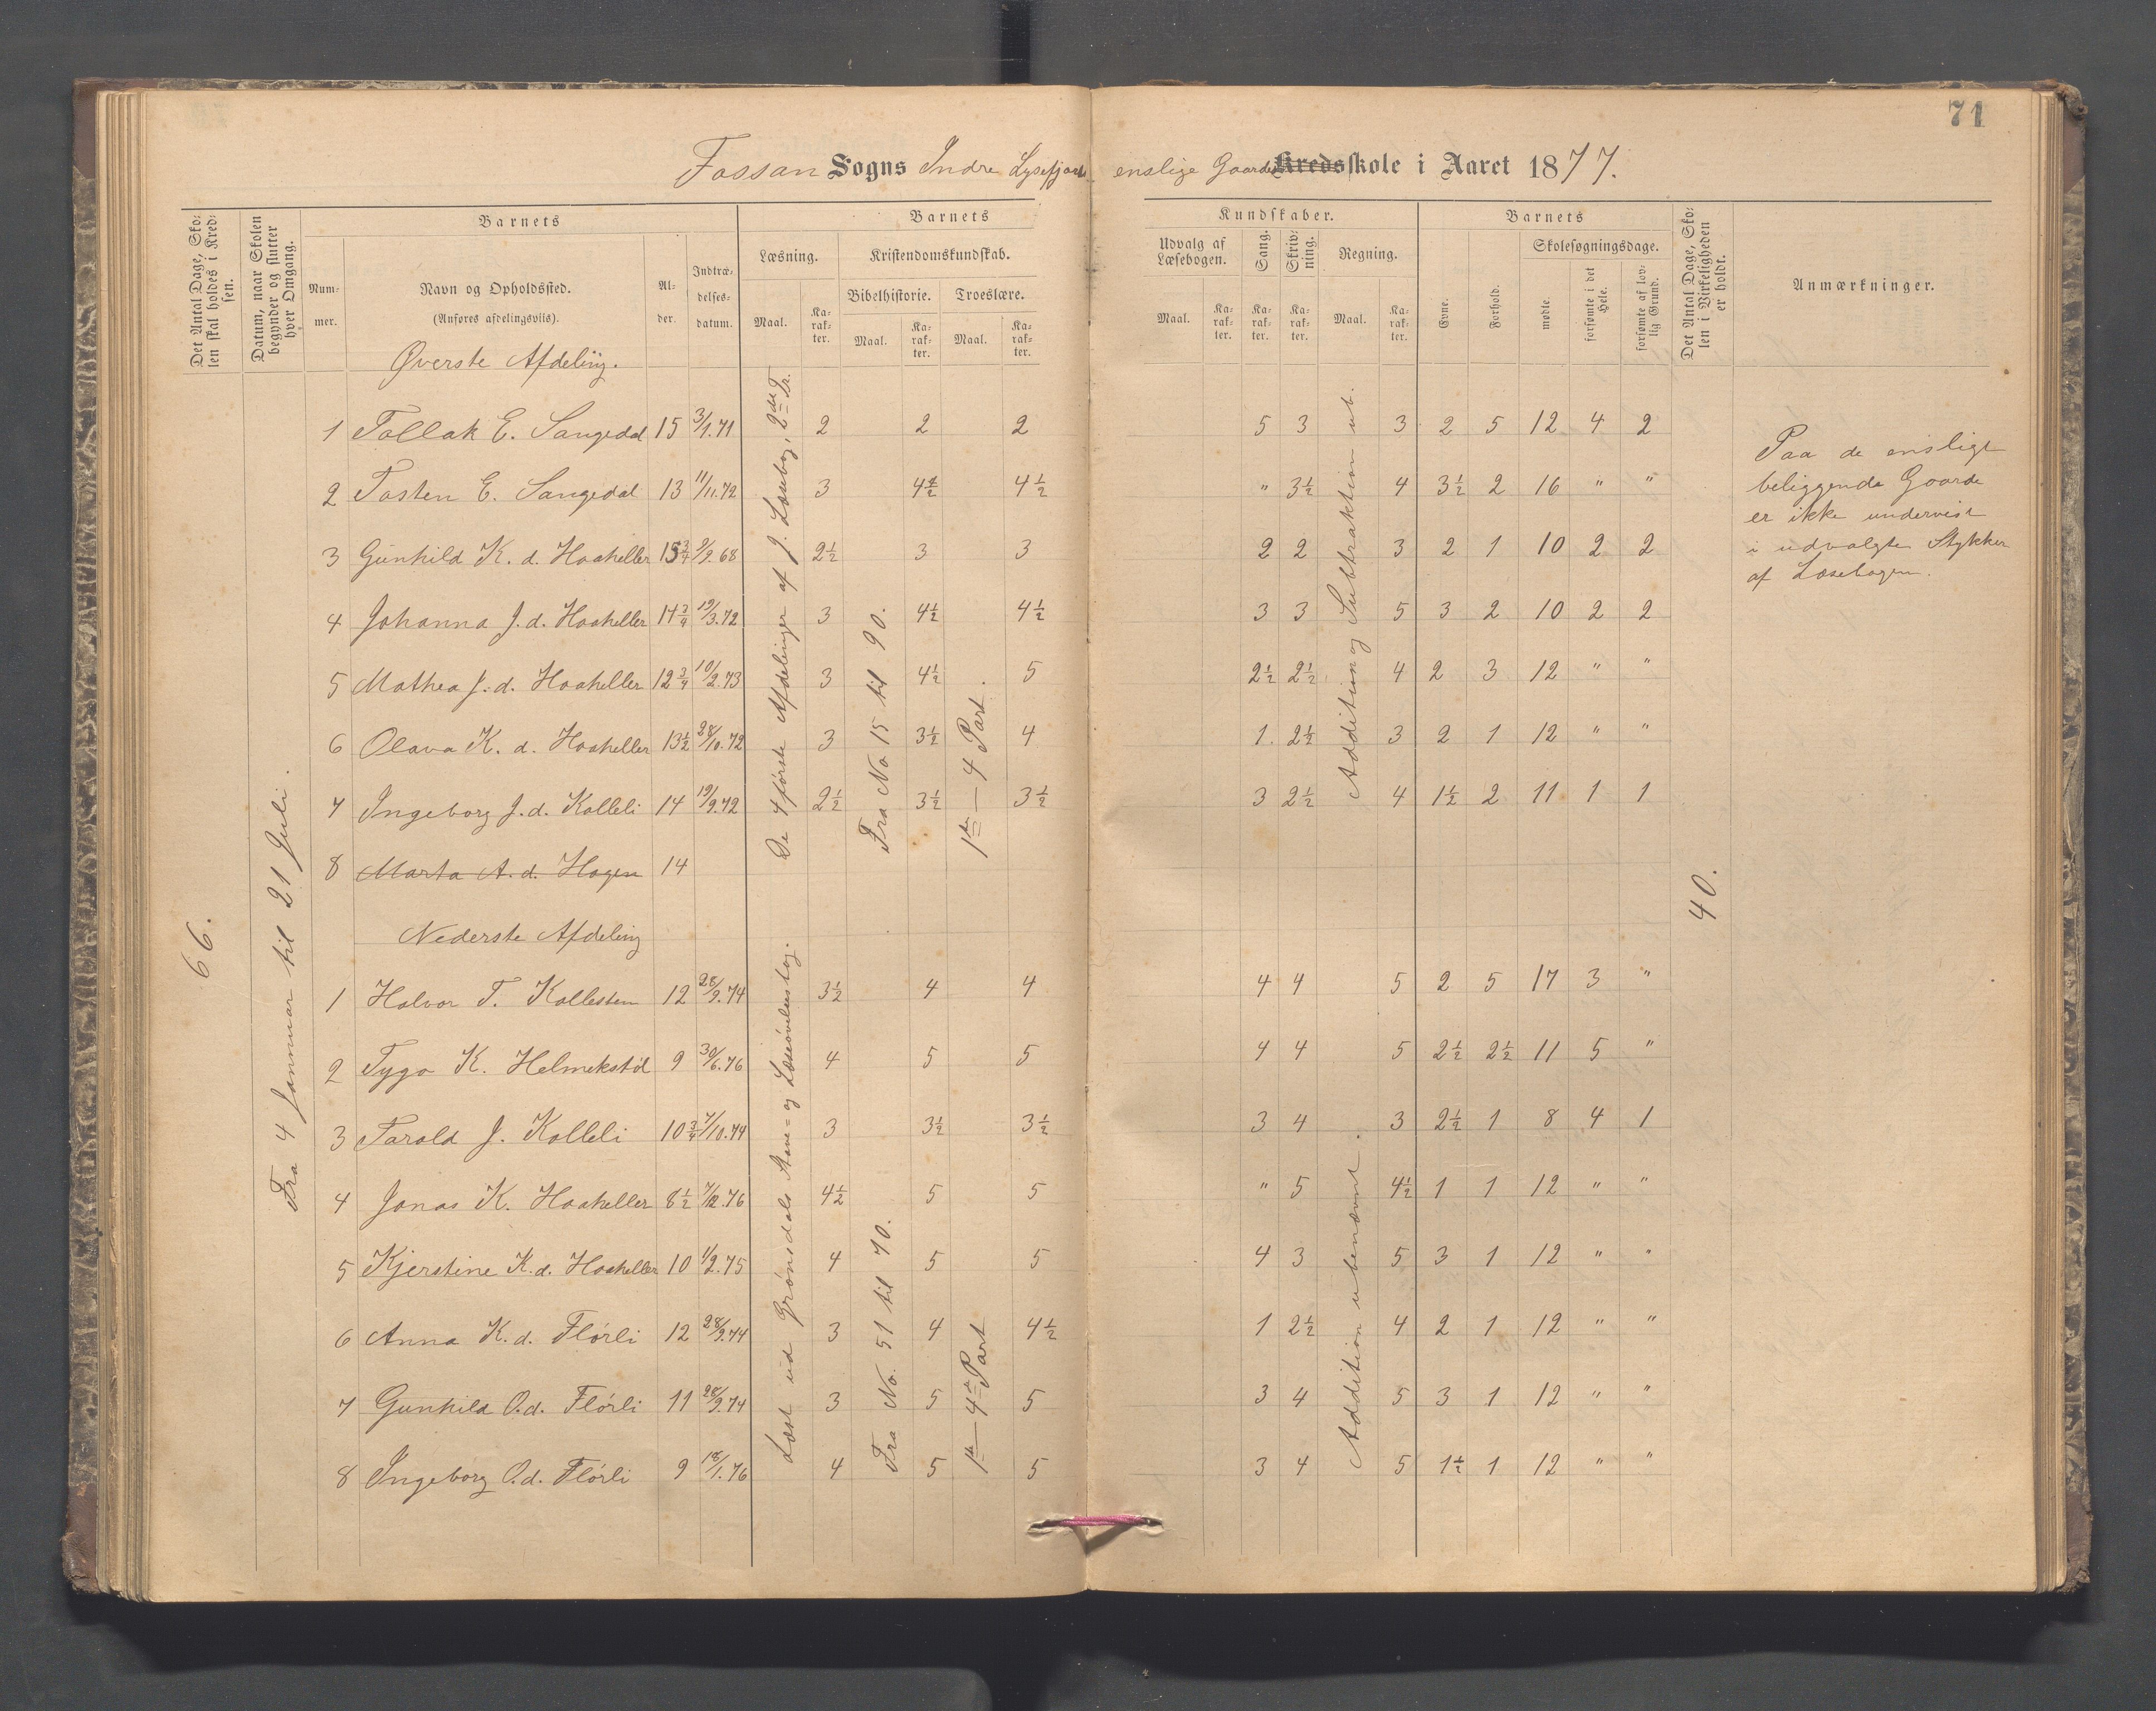 71
Fossan Sogns Indre Lysefjords enslige Gaarde Kredsskole i Aaret 1877.
Det Antal Dage, Skolen skal holdes i Kredsen.
Datum, naar Skolen begynder og slutter hver Omgang.
Barnets
Barnets
Kundskaber.
Barnets
Det Antal Dage, Skolen i Virkeligheden er holdt.
Anmærkninger.
Nummer.
Navn og Opholdssted.
(Anføres afdelingsviis).
Alder.
Indtrædelsesdatum.
Læsning.
Kristendomskundskab.
Udvalg af Læsebogen.
Sang.
Skrivning.
Regning.
Evne.
Forhold.
Skolesøgningsdage.
Bibelhistorie.
Troeslære.
mødte.
forsømte i det Hele.
forsømte af lovlig Grund.
Maal.
Karakter.
Maal.
Karakter.
Maal.
Karakter.
Maal.
Karakter.
Karakter.
Karakter.
Maal.
Karakter.
66.
Fra 4 Januar til 21 Juli.
Øverste Afdeling.
De 4 første Afdelinger af J. Læsebog, 2den Tr.
Fra No 15 til 90.
1ste — 4 Part.
Addition og Subtraktion ub.
40.
1 Tollak E. Sangedal 15 3/1.71 2 2 2 5 3 3 2 5 12 4 2
2 Tosten E. Sangedal 13 11/11.72 3 4½ 4½ " 3½ 4 3½ 2 16 " "
3 Gunhild K. d. Hoaheller 15¾ 9/2.68 2½ 3 3 2 2 3 2 1 10 2 2
4 Johanna J. d. Hoaheller 14¾ 19/3.72 3 4½ 4½ 3 3 5 3 2 10 2 2
5 Mathea J. d. Hoaheller 12¾ 10/2.73 3 4½ 5 2½ 2½ 4 2 3 12 " "
6 Olava K. d. Hoaheller 13½ 28/10.72 3 3½ 4 1 2½ 3 2 1 12 " "
7 Ingeborg J. d. Kolleli 14 19/9.72 2½ 3½ 3½ 3 2½ 4 1½ 2 11 1 1
8 Marta A. d. Hagen 14
Paa de ensligt
beliggende Gaarde
er ikke undervist
i udvalgte Stykker
af Læsebogen.
Nederste Afdeling
Læst ud Grønsdals Stave= og Læseøvelsesbog.
Fra No. 51 til 70.
1ste — 4de Part
Addition ubenævnt.
1 Halvor T. Kallesten 12 28/9.74 3½ 4 4 4 4 5 2 5 17 3 "
2 Tygo K. Helmekstøl 9 30/6.76 4 5 5 4 4 5 2½ 2½ 11 5 "
3 Tarald J. Kolleli 10¾ 7/10.74 3 3½ 3½ 3 4 3 2½ 1 8 4 1
4 Jonas K. Hoaheller 8½ 7/12.76 4½ 5 5 " 5 4½ 1 1 12 " "
5 Kjerstine K. d. Hoaheller 10 1/2.75 4 5 5 4 3 5 3 1 12 " "
6 Anna K. d. Flørli 12 28/9.74 3 4 4½ 1 2½ 4 2 1 12 " "
7 Gunhild O. d. Flørli 11 28/9.74 3 5 5 3 4 5 3 1 12 " "
8 Ingeborg O. d. Flørli 9 18/1.76 4 5 5 3 4 5 1½ 1 12 " "